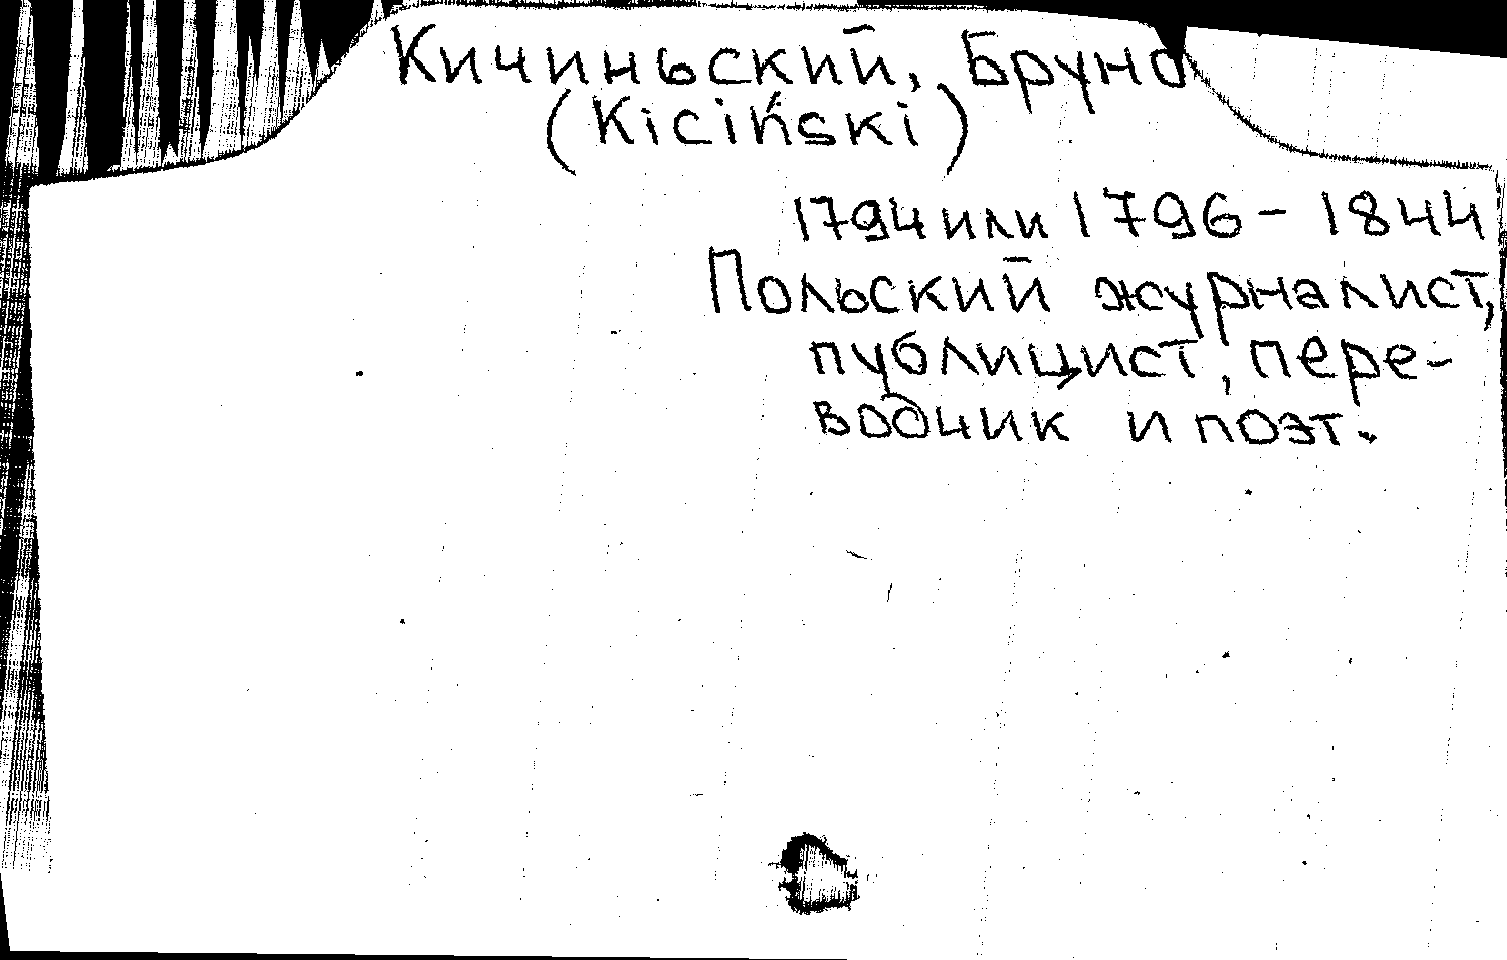 Кичиньский, Бруно
(Kiciński)
1794 или 1796 - 1844
Польский журналист,
публицист, пере-
водчик и поэт.